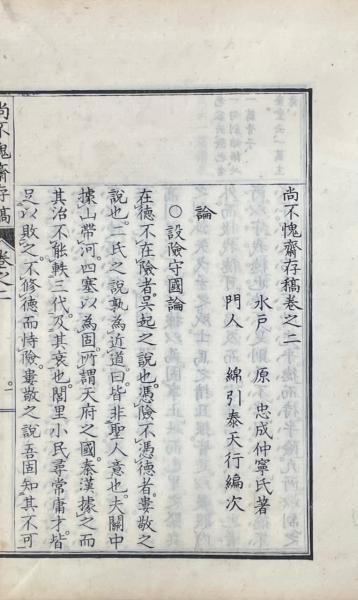 尚不愧齋存稿卷之二
水戸 原 忠成仲寧氏著
門人 綿引泰天行編次
論
○設險守國論
在德不在險者吳起之說也憑險不憑德者婁敬之
說也二氏之說孰為近道曰皆非聖人意也夫關中
據山帶河四塞以為固所謂天府之國秦漢據之而
其治不能軼三代及其衰也閭里小民尋常庸才皆
足以敗之不修德而恃險婁敬之說吾固知其不可
尚不愧齋存稿 卷之二
一